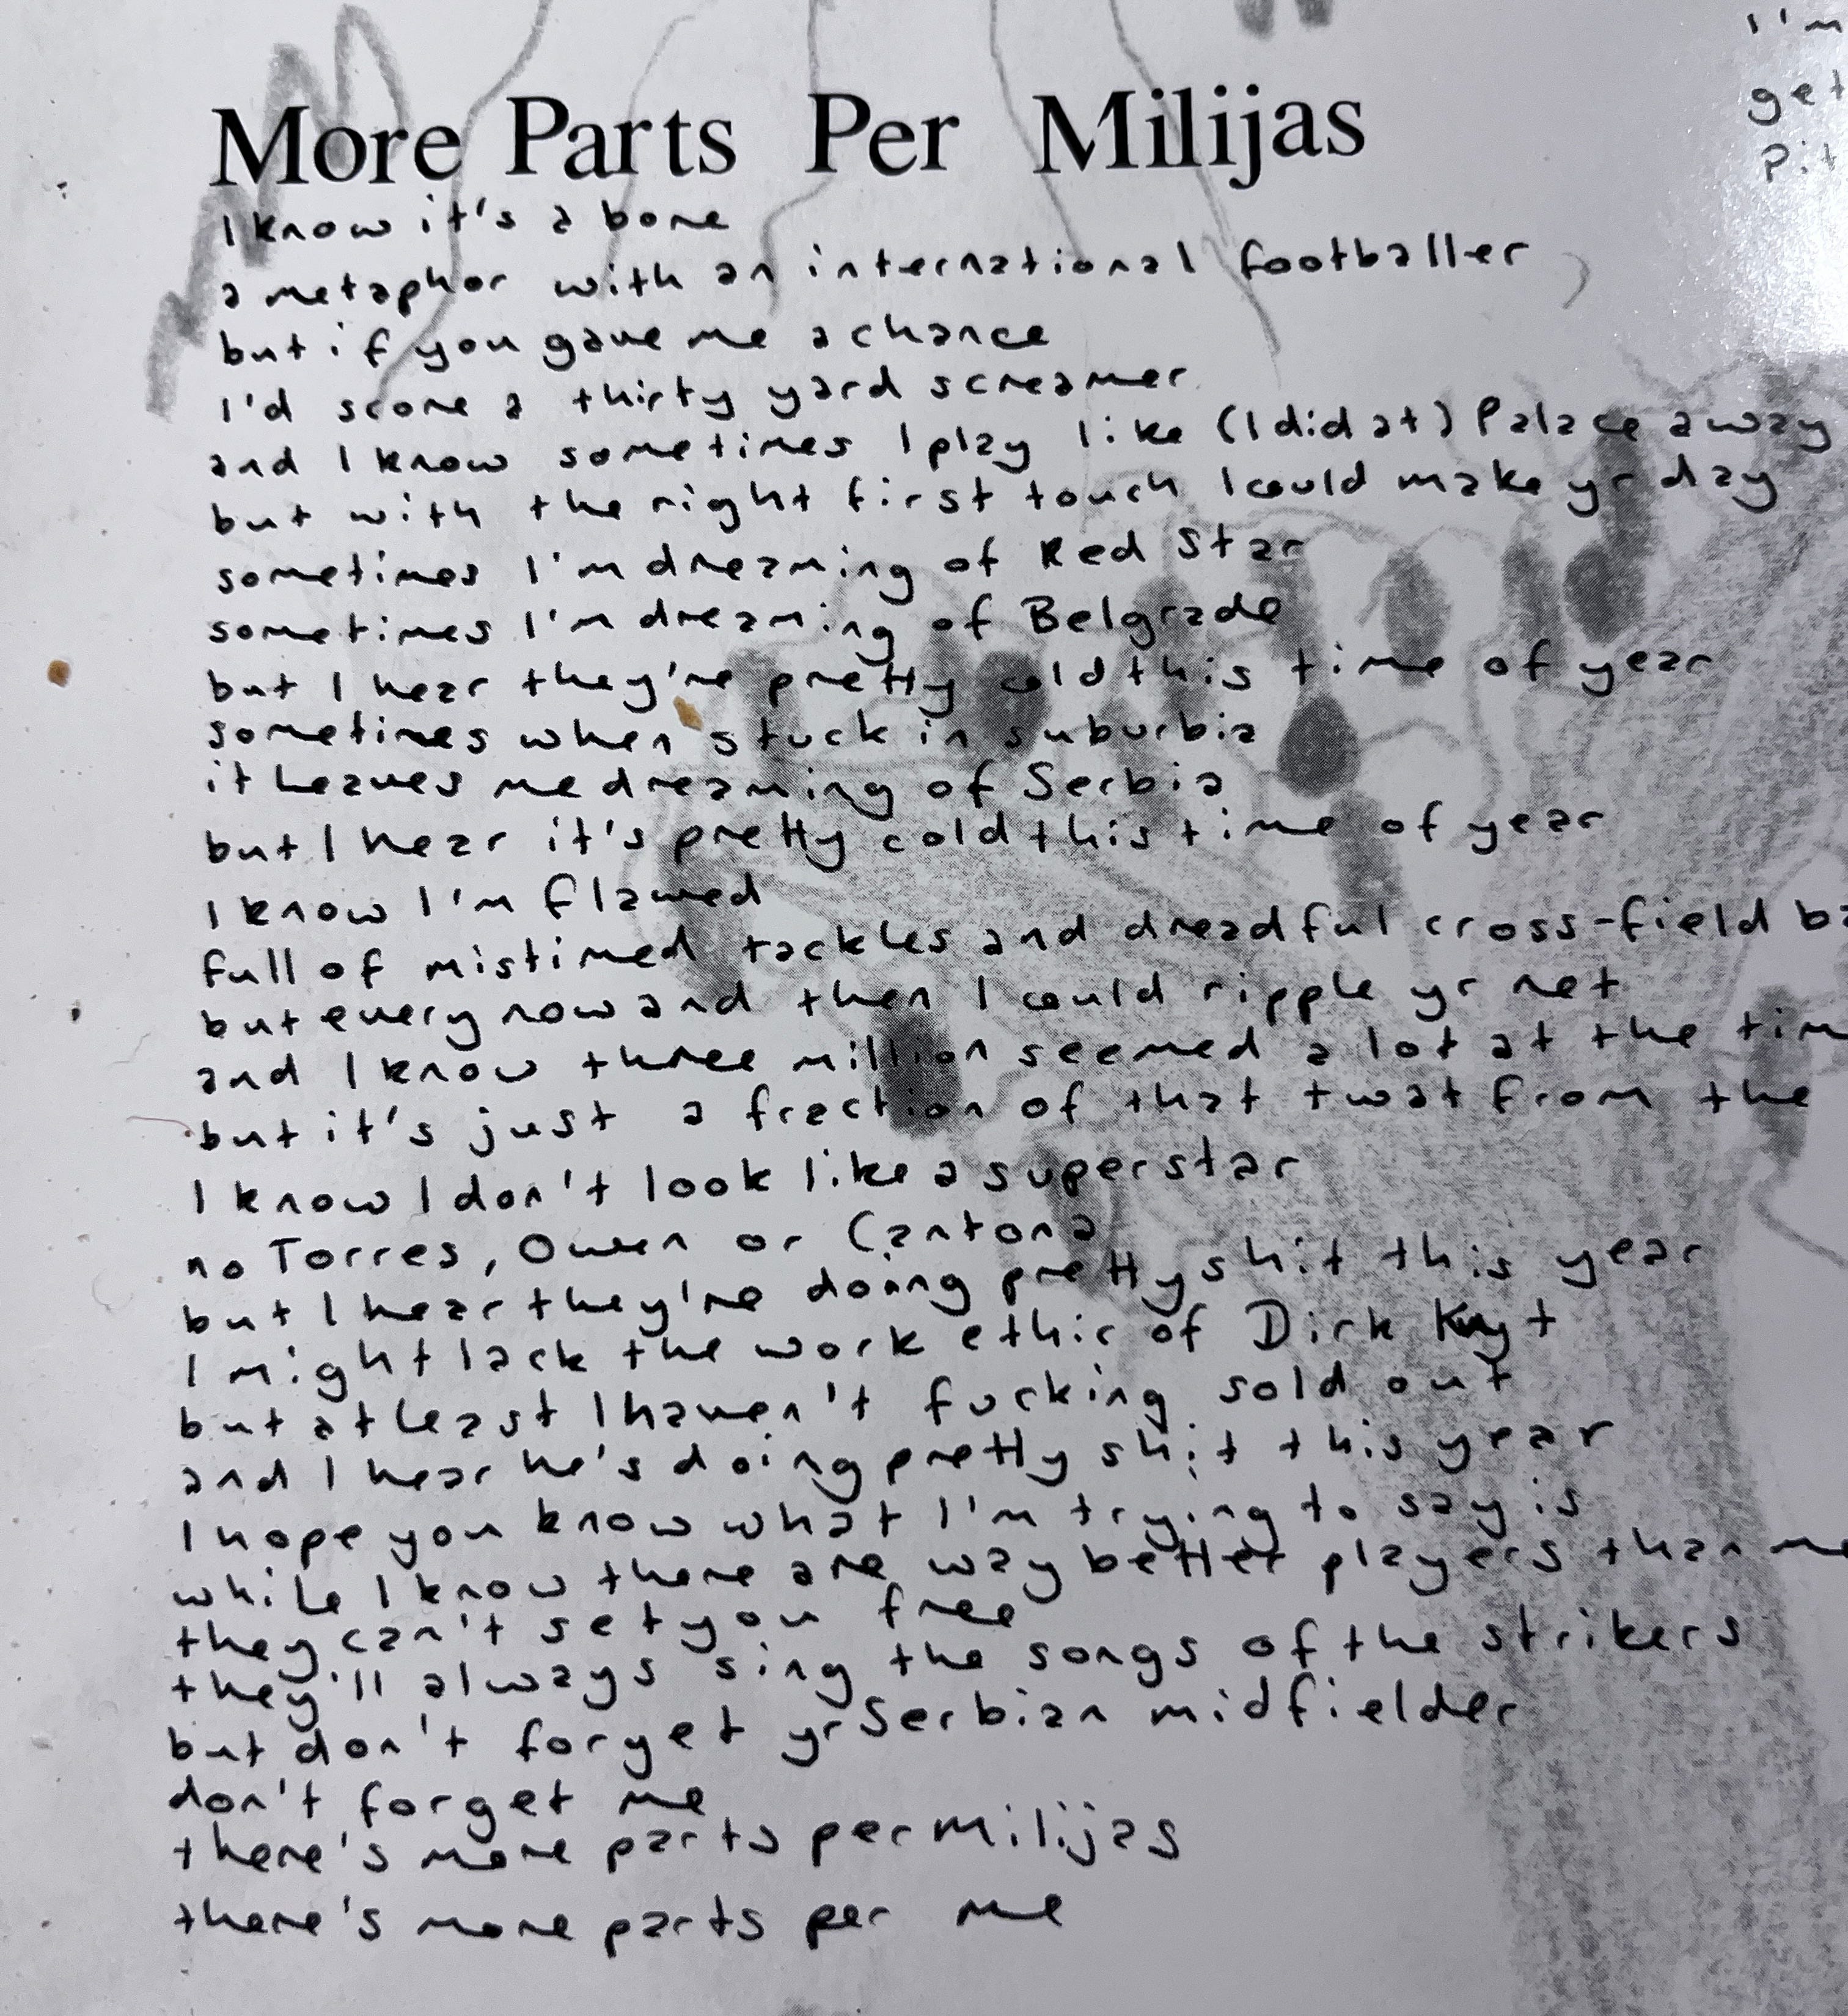 More Parts Per Milijas
I know it's a bore
a metaphor with an international footballer
but if you gave me a chance
I'd score a thirty yard screamer
and I know sometimes I play like (I did at) Palace away
but with the right first touch I could make yr day
sometimes I'm dreaming of Red Star
sometimes I'm dreaming of Belgrade
but I hear they're pretty cold this time of year
sometimes when stuck in suburbia
it leaves me dreaming of Serbia
but I hear it's pretty cold this time of year
I know I'm flawed
full of mistimed tackles and dreadful cross-field
but every now and then I could ripple yr net
and I know three million seemed a lot at the
but it's just a fraction of that twat from the
I know I don't look like a superstar
no Torres, Owen or Cantona
but I hear they're doing pretty shit this year
I might lack the work ethic of Dirk Kuyt
but at least I haven't fucking sold out
and I hear he's doing pretty shit this year
I hope you know what I'm trying to say is
while I know there are way better players than me
they can't set you free
they'll always sing the songs of the strikers
but don't forget yr Serbian midfielder
don't forget me
there's more parts per Milijas
there's more parts per me
I'm